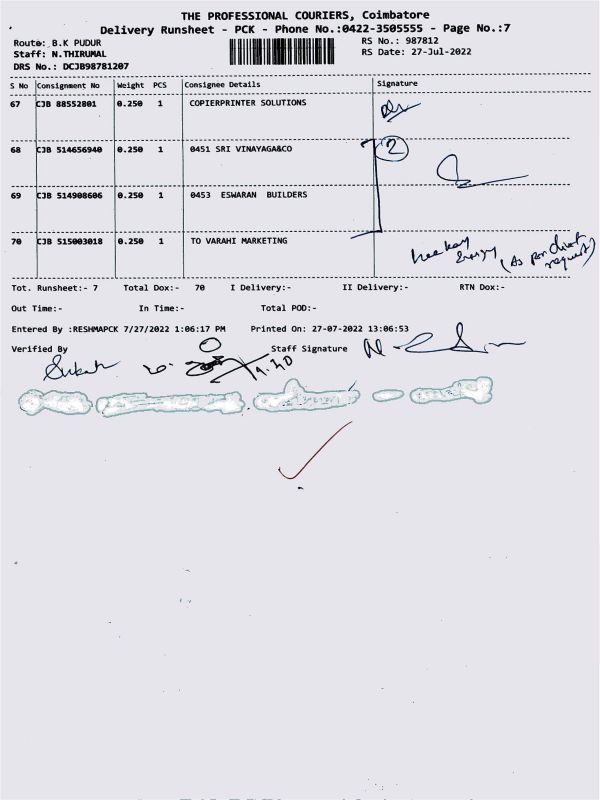 THE PROFESSIONAL COURIERS, Coimbatore
Delivery Runsheet - PCK - Phone No.:0422-3505555 - Page No.:7
Route: B.K PUDUR
RS No.: 987812
Staff: N.THIRUMAL
RS Date: 27-Jul-2022
DRS No.: DCJB98781207
S No Consignment No Weight PCS Consignee Details Signature
67 CJB 88552801 0.250 1 COPIERPRINTER SOLUTIONS
68 CJB 514656940 0.250 1 0451 SRI VINAYAGA&CO 2
69 CJB 514908606 0.250 1 0453 ESWARAN BUILDERS
70 CJB 515003018 0.250 1 TO VARAHI MARKETING
(As per client
request)
Tot. Runsheet:- 7 Total Dox:- 70 I Delivery:- II Delivery:- RTN Dox:-
Out Time:- In Time:- Total POD:-
Entered By :RESHMAPCK 7/27/2022 1:06:17 PM Printed On: 27-07-2022 13:06:53
Verified By Staff Signature